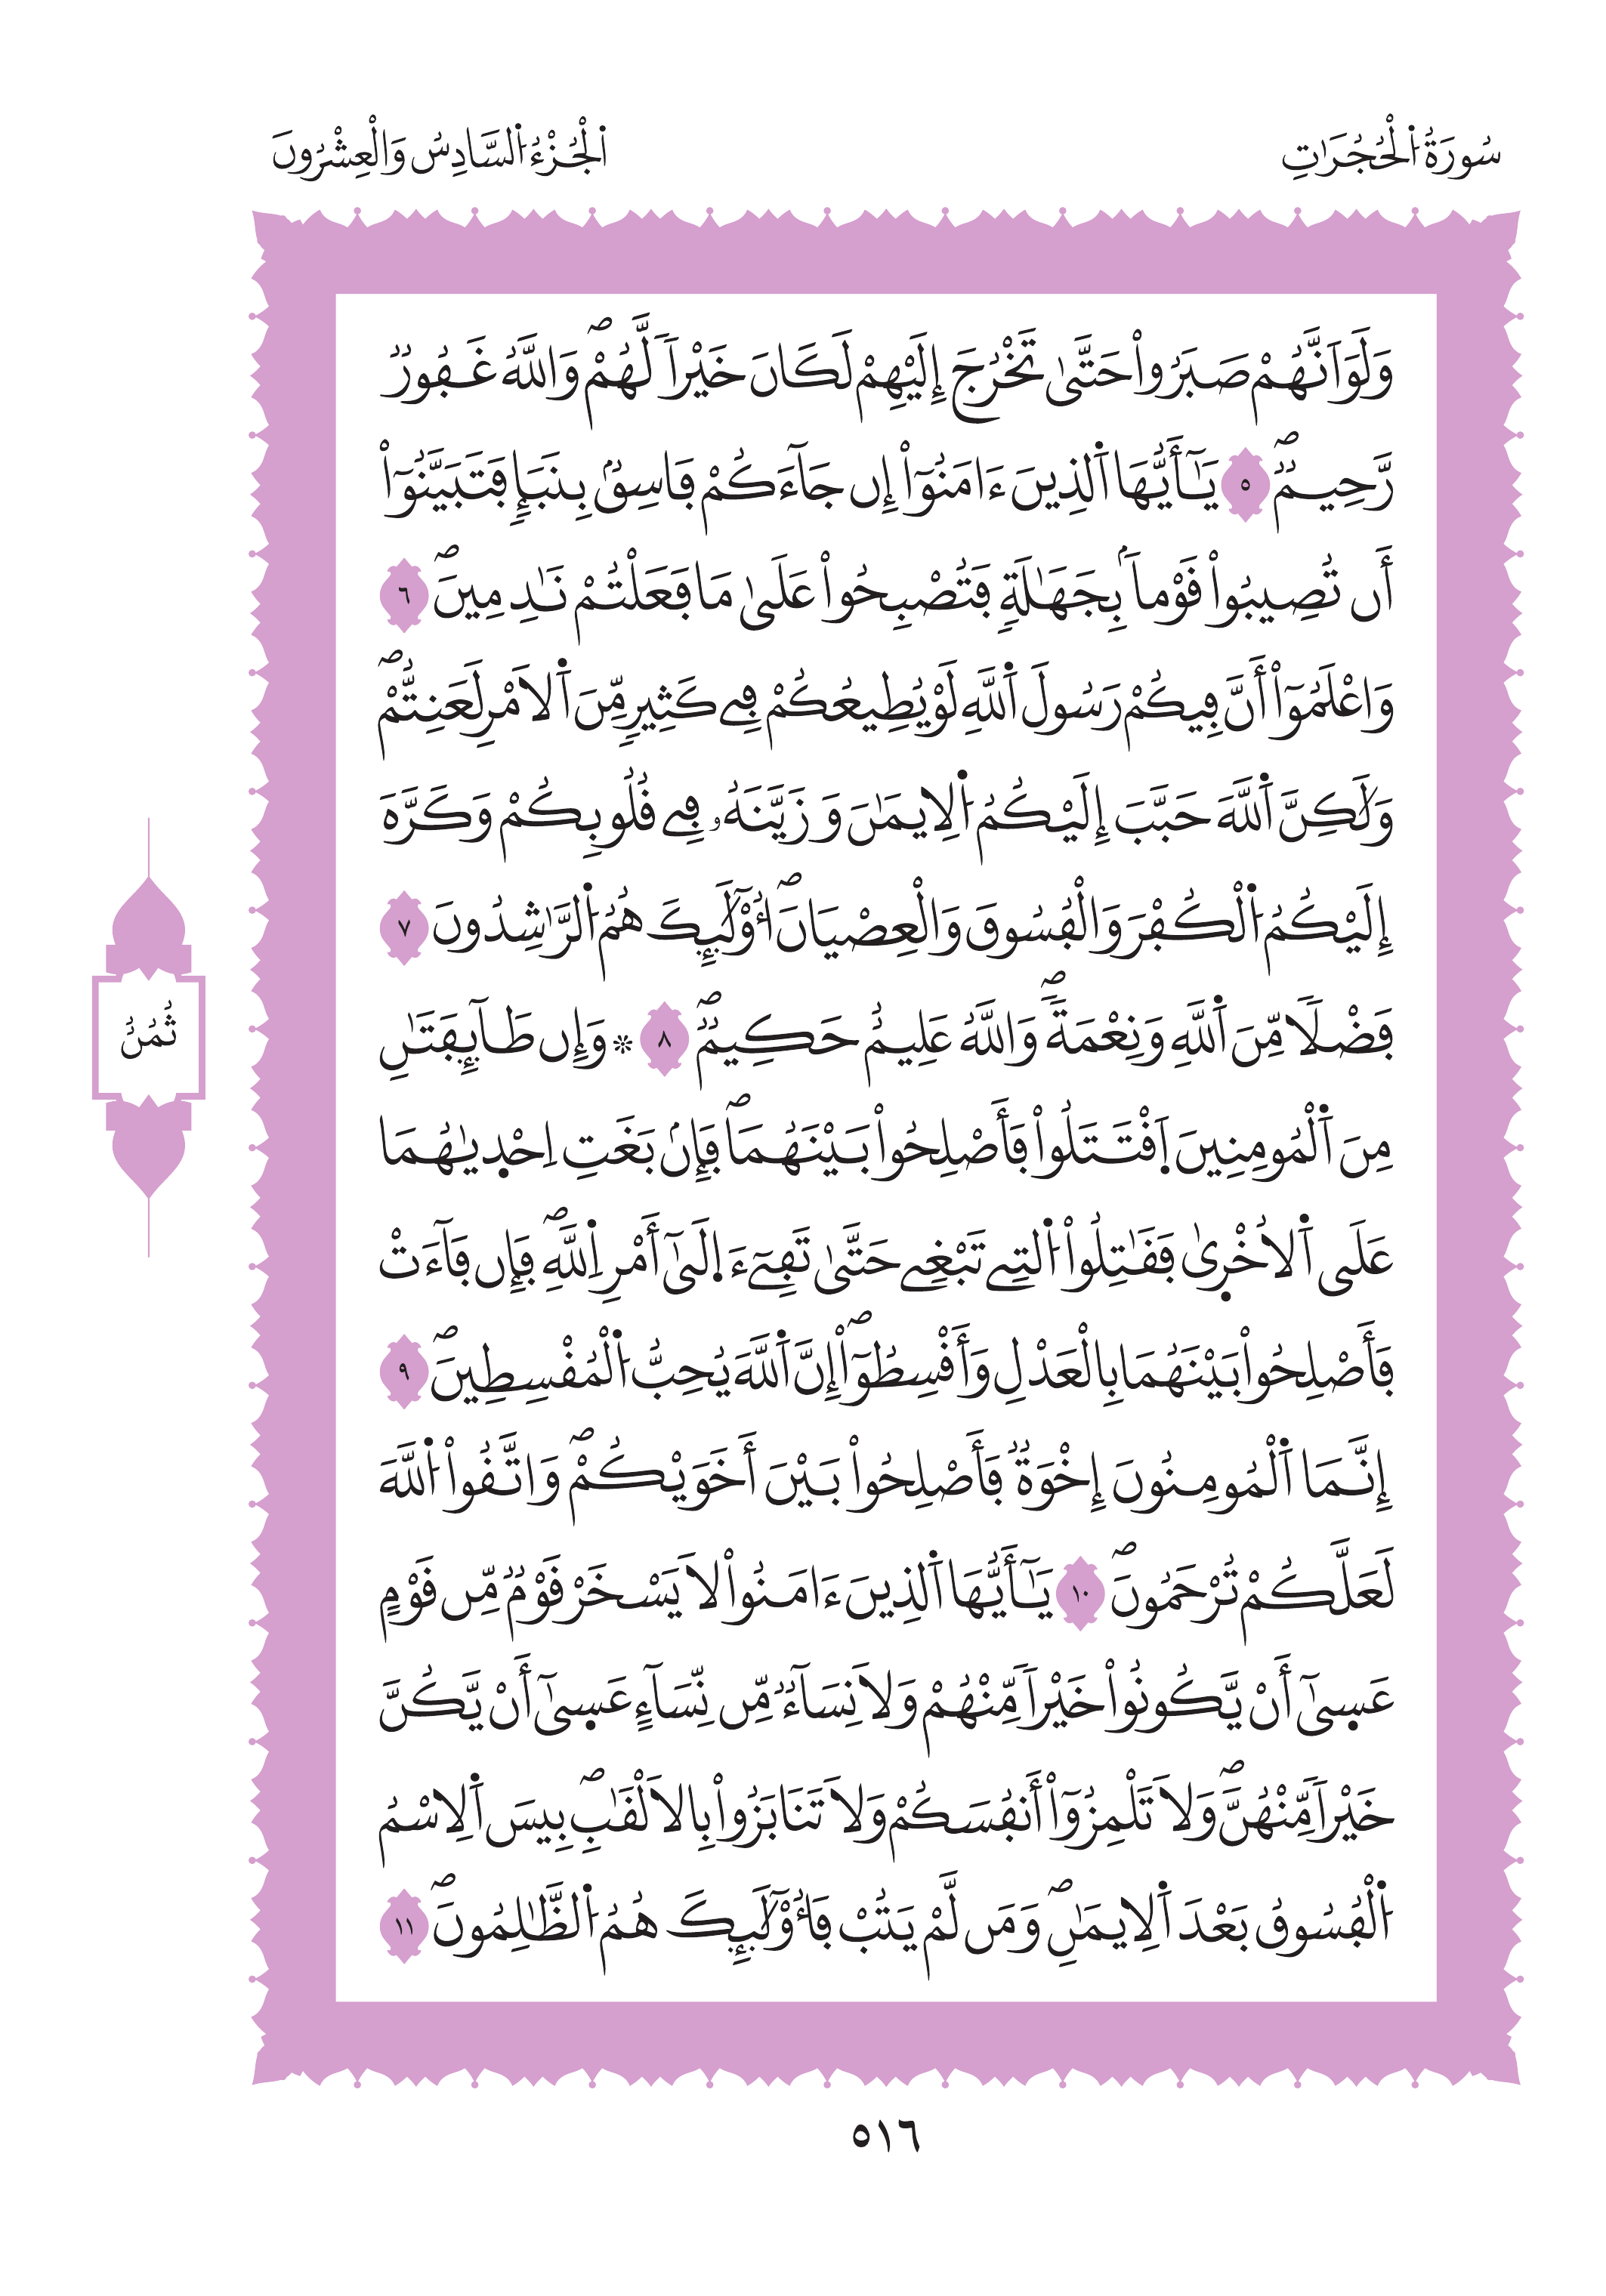 سُورَةُ اُ۬لْحُجُرَٰتِ
اَ۬لْجُزْءُ اُ۬لسَّادِسُ وَالْعِشْرُونَ
وَلَوَ اَنَّهُمْ صَبَرُواْ حَتَّىٰ تَخْرُجَ إِلَيْهِمْ لَكَانَ خَيْراٗ لَّهُمْۖ وَاللَّهُ غَفُورٞ
رَّحِيمٞۖ ٥ يَٰٓأَيُّهَا اَ۬لذِينَ ءَامَنُوٓاْ إِن جَآءَكُمْ فَاسِقُۢ بِنَبَإٖ فَتَبَيَّنُوٓاْ
أَن تُصِيبُواْ قَوْماَۢ بِجَهَٰلَةٖ فَتُصْبِحُواْ عَلَىٰ مَا فَعَلْتُمْ نَٰدِمِينَۖ ٦
وَاعْلَمُوٓاْ أَنَّ فِيكُمْ رَسُولَ اَ۬للَّهِ لَوْ يُطِيعُكُمْ فِے كَثِيرٖ مِّنَ اَ۬لَامْرِ لَعَنِتُّمْۖ
وَلَٰكِنَّ اَ۬للَّهَ حَبَّبَ إِلَيْكُمُ اُ۬لِايمَٰنَ وَزَيَّنَهُۥ فِے قُلُوبِكُمْ وَكَرَّهَ
إِلَيْكُمُ اُ۬لْكُفْرَ وَالْفُسُوقَ وَالْعِصْيَانَۖ أُوْلَٰٓئِكَ هُمُ اُ۬لرَّٰشِدُونَ ٧
فَضْلاٗ مِّنَ اَ۬للَّهِ وَنِعْمَةٗۖ وَاللَّهُ عَلِيمٌ حَكِيمٞۖ ٨ ۞ وَإِن طَآئِفَتَٰنِ
مِنَ اَ۬لْمُومِنِينَ اَ۪قْتَتَلُواْ فَأَصْلِحُواْ بَيْنَهُمَاۖ فَإِنۢ بَغَتِ اِحْد۪يٰهُمَا
عَلَى اَ۬لُاخْر۪يٰ فَقَٰتِلُواْ اُ۬لتِے تَبْغِے حَتَّىٰ تَفِےٓءَ اِ۪لَىٰٓ أَمْرِ اِ۬للَّهِۖ فَإِن فَآءَتْ
فَأَصْلِحُواْ بَيْنَهُمَا بِالْعَدْلِ وَأَقْسِطُوٓاْۖ إِنَّ اَ۬للَّهَ يُحِبُّ اُ۬لْمُقْسِطِينَۖ ٩
إِنَّمَا اَ۬لْمُومِنُونَ إِخْوَةٞ فَأَصْلِحُواْ بَيْنَ أَخَوَيْكُمْۖ وَاتَّقُواْ اُ۬للَّهَ
لَعَلَّكُمْ تُرْحَمُونَۖ ١٠ يَٰٓأَيُّهَا اَ۬لذِينَ ءَامَنُواْ لَا يَسْخَرْ قَوْمٞ مِّن قَوْمٍ
عَس۪يٰٓ أَنْ يَّكُونُواْ خَيْراٗ مِّنْهُمْ وَلَا نِسَآءٞ مِّن نِّسَآءٍ عَس۪يٰٓ أَنْ يَّكُنَّ
خَيْراٗ مِّنْهُنَّۖ وَلَا تَلْمِزُوٓاْ أَنفُسَكُمْ وَلَا تَنَابَزُواْ بِالَالْقَٰبِۖ بِيسَ اَ۬لِاسْمُ
اُ۬لْفُسُوقُ بَعْدَ اَ۬لِايمَٰنِۖ وَمَن لَّمْ يَتُبْ فَأُوْلَٰٓئِكَ هُمُ اُ۬لظَّٰلِمُونَۖ ١١
ثُمُنُ
٥١٦